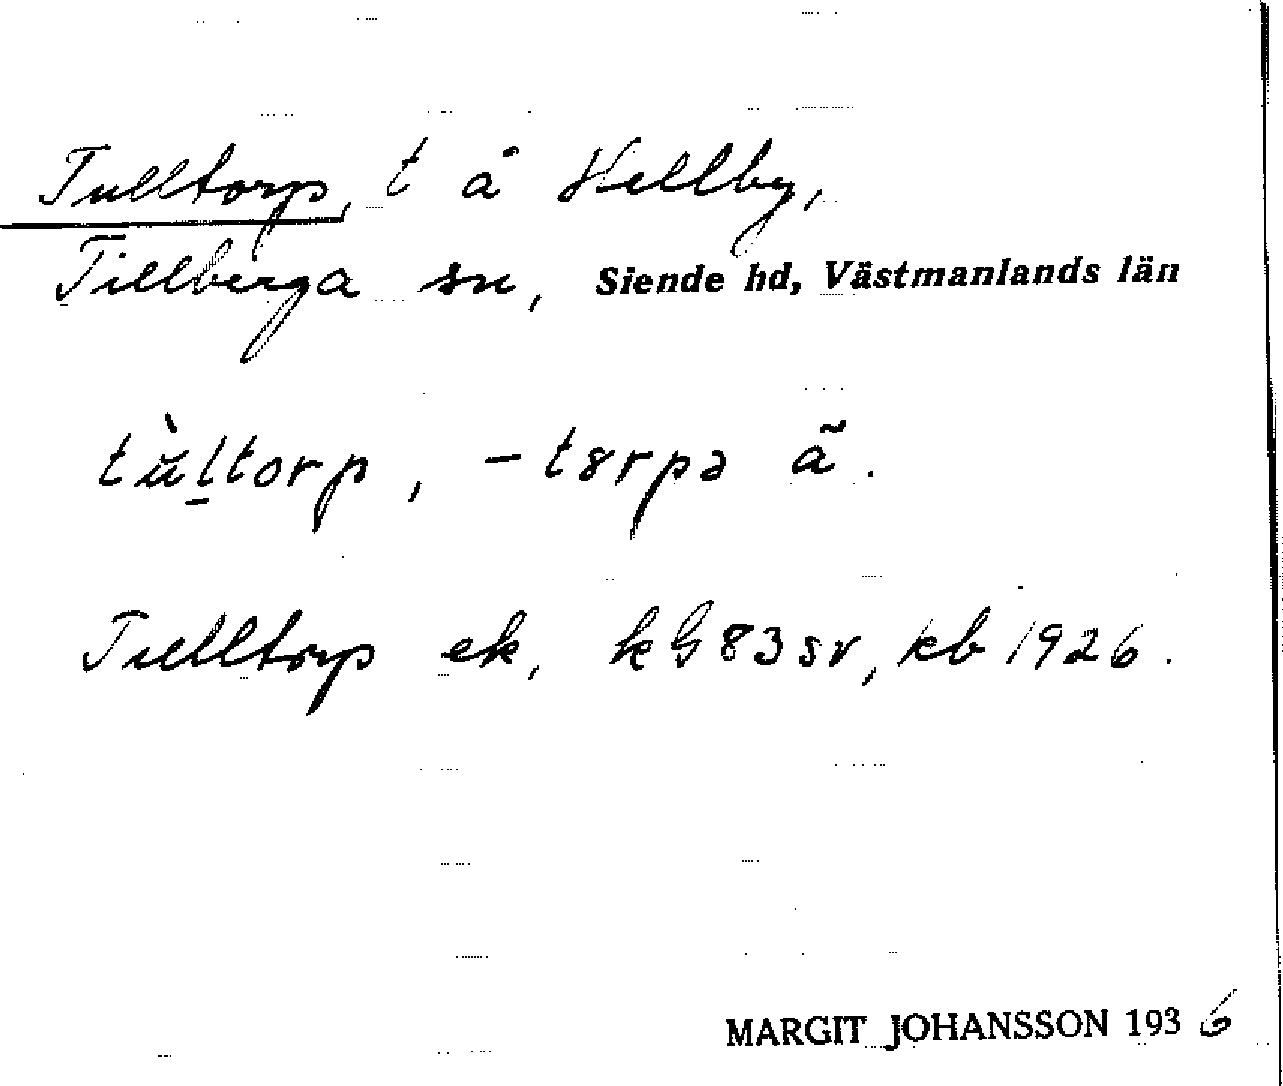 Tulltorp, t å Hellby,
Tillberga sn, Siende hd, Västmanlands län
tùltorp, -tørpə ã.
Tulltorp ek, kG83sv, kb 1926.
MARGIT JOHANSSON 1936